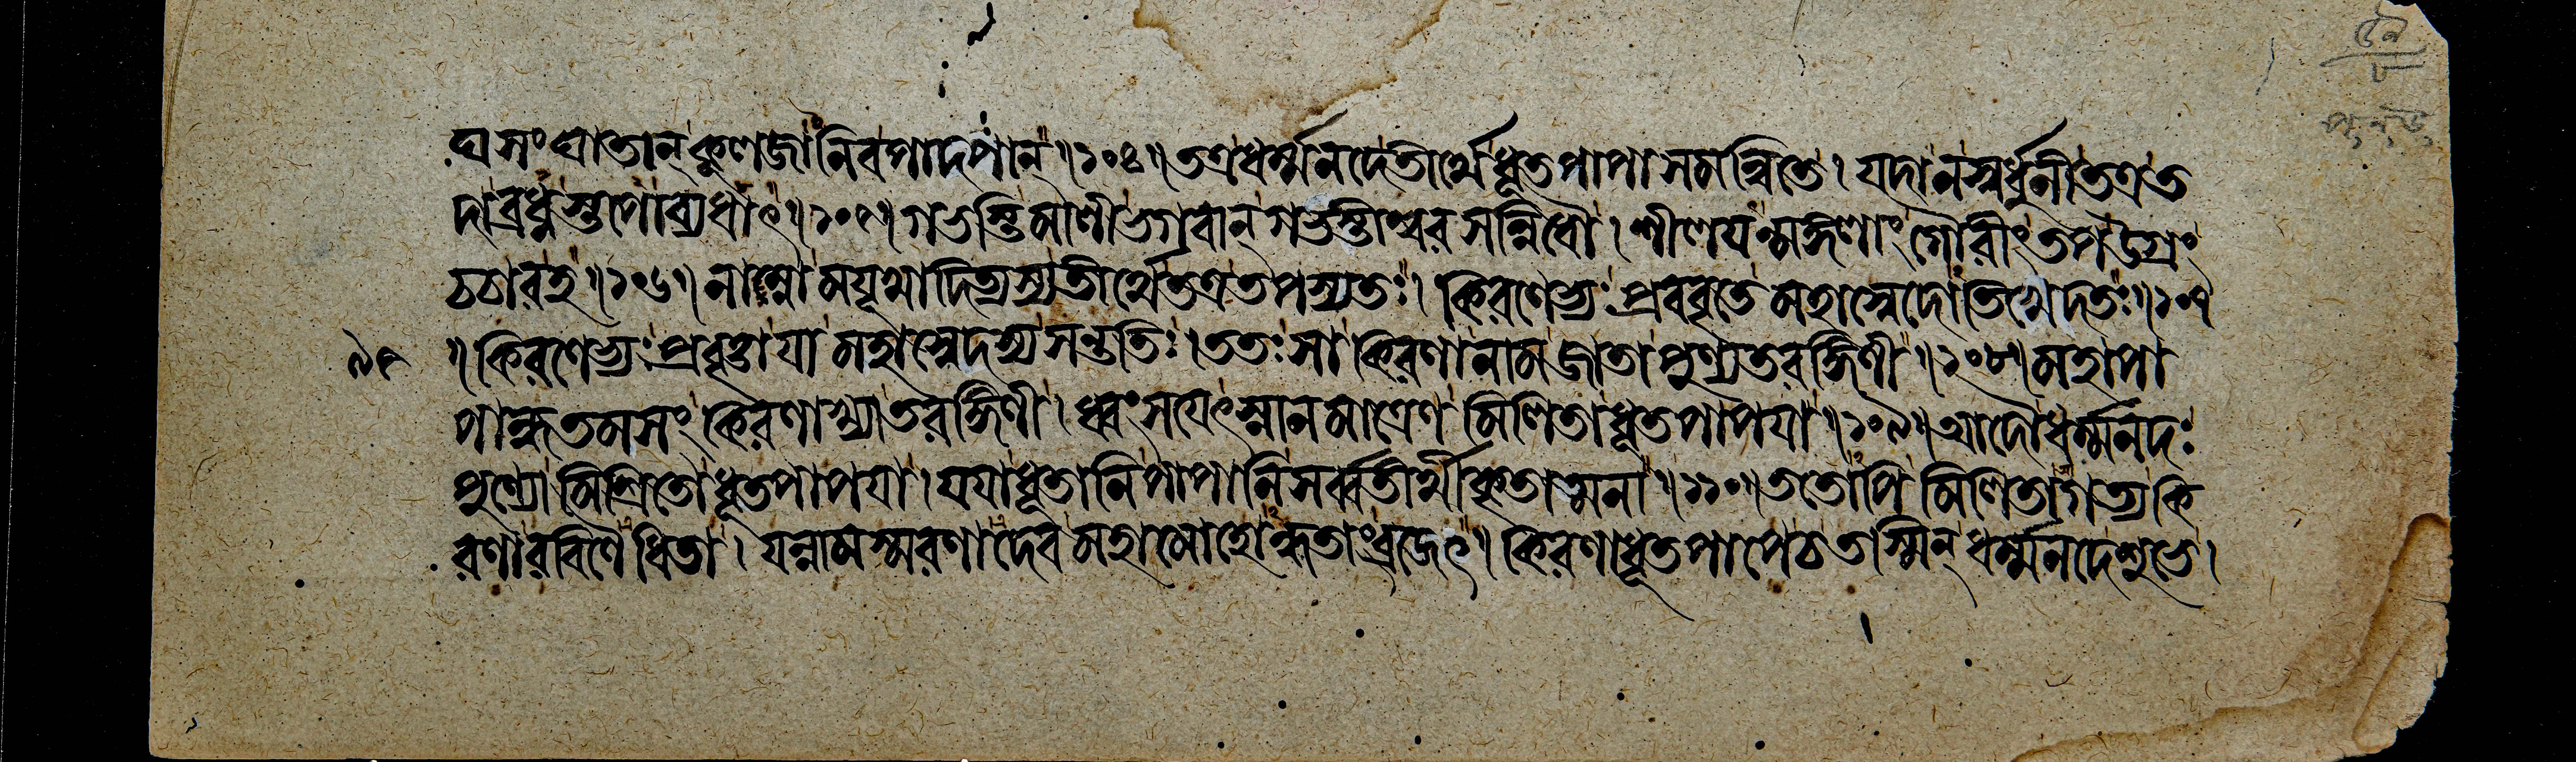 ঘসংঘাতান্ কুলজানিবপাদপান্ ॥ ১০৪ ॥ তত্রধর্ম্মনদেতীর্থেধূতপাপাসমন্বিতে । যদানস্বর্ধুনীতত্রত
দাব্রধ্নস্তপোব্যধাৎ ॥ ১০৫ ॥ গভস্তিমালীভগবান্ গভস্তীশ্বরসন্নিধৌ । শীলযন্মঙ্গলাং গৌরীং তপউগ্রং
চচারহ ॥ ১০৬ ॥ নাম্নামযূখাদিত্যস্যতীর্থেতত্রতপস্যতঃ । কিরণেভ্যঃ প্রববৃতে মহাস্বেদোতিখেদতঃ ॥ ১০৭
॥ কিরণেভ্যঃ প্রবৃত্তাযা মহাস্বেদস্যসন্ততিঃ । ততঃ সা কিরণানামজাতাপুণ্যতরঙ্গিণী ॥ ১০৮ ॥ মহাপা
পান্ধতমসং কিরণাখ্যাতরঙ্গিণী । ধ্বংসযেৎস্নানমাত্রেণ মিলিতাধূতপাপযা ॥ ১০৯ ॥ আদৌধর্ম্মনদঃ
পুণ্যো মিশ্রিতোধূতপাপযা । যযাধূতানিপাপানিসর্ব্বতীর্থীকৃতাত্মনা ॥ ১১০ ॥ ততোপি মিলিতাগত্যকি
রণারবিণৈধিতা । যন্নামস্মরণাদেবমহামোহোন্ধতাংব্রজেৎ । কিরণাধূতপাপেচতস্মিন্ ধর্ম্মনদেশুভে ।
৯৫